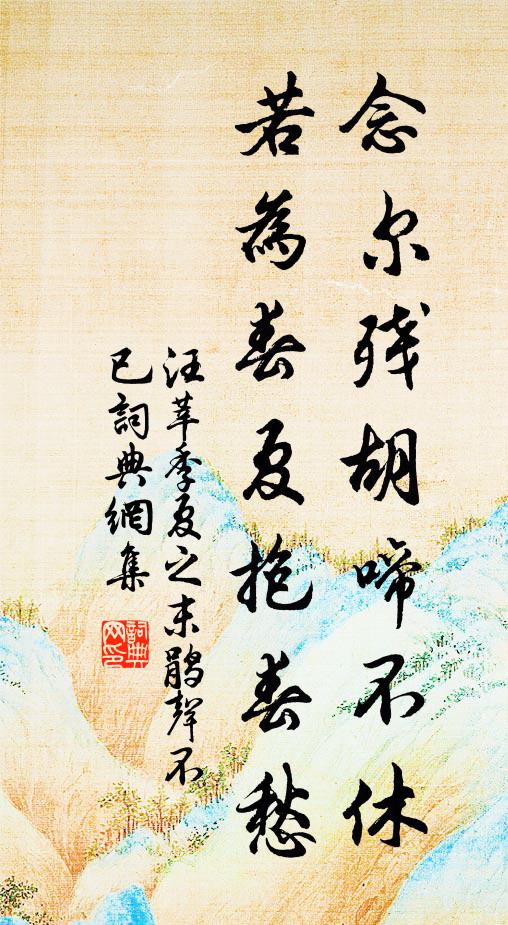 念尔残胡啼不休
若為春夏抱春愁
汪莘季夏之末鹃聲不
已詞典網集
詞典网印